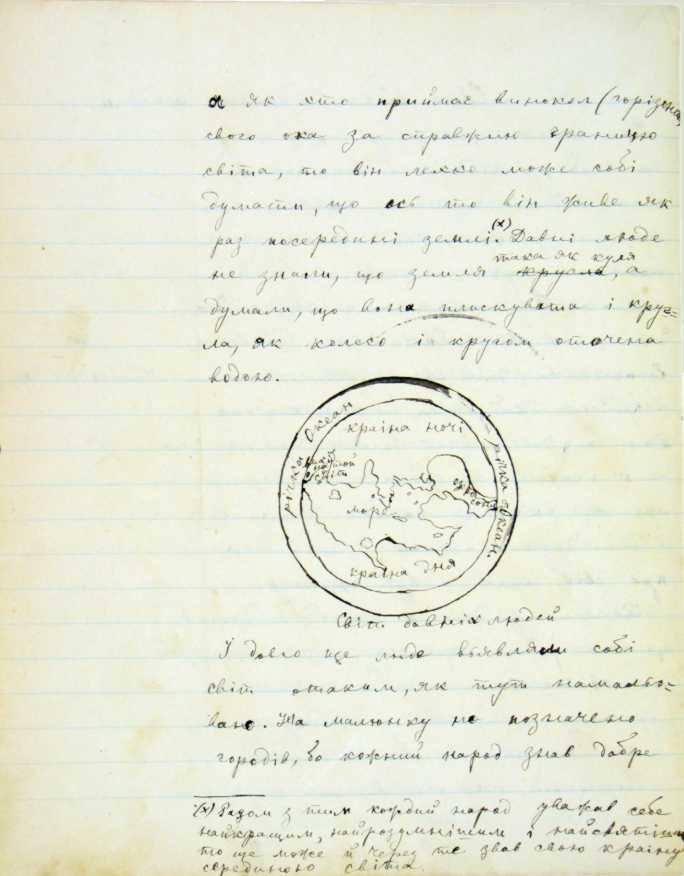 а як хто приймає виокол (горізонт)
свого ока за справжню границю
світа, то він легко може собі
думати, що ось то він живе як
раз посередині землі.(х) Давні люде
така як куля
не знали, що земля кругла, а
думали, що вона плискувата і круг=
ла, як колесо і кругом оточена
водою.
річка Океан
річка Океан.
країна ночі
на той
світ
море
сонця
країна дня
Світ давніх людей
І довго ще люде виявляли собі
світ отаким, як тут намальо=
вано. На малюнку не позначено
городів, бо кожний народ знав добре
(х) Разом з тим кождий народ уважав себе
найкращим, найрозумнішим і найсвятішим
то ще може й через те звав свою країну
серединою світа.